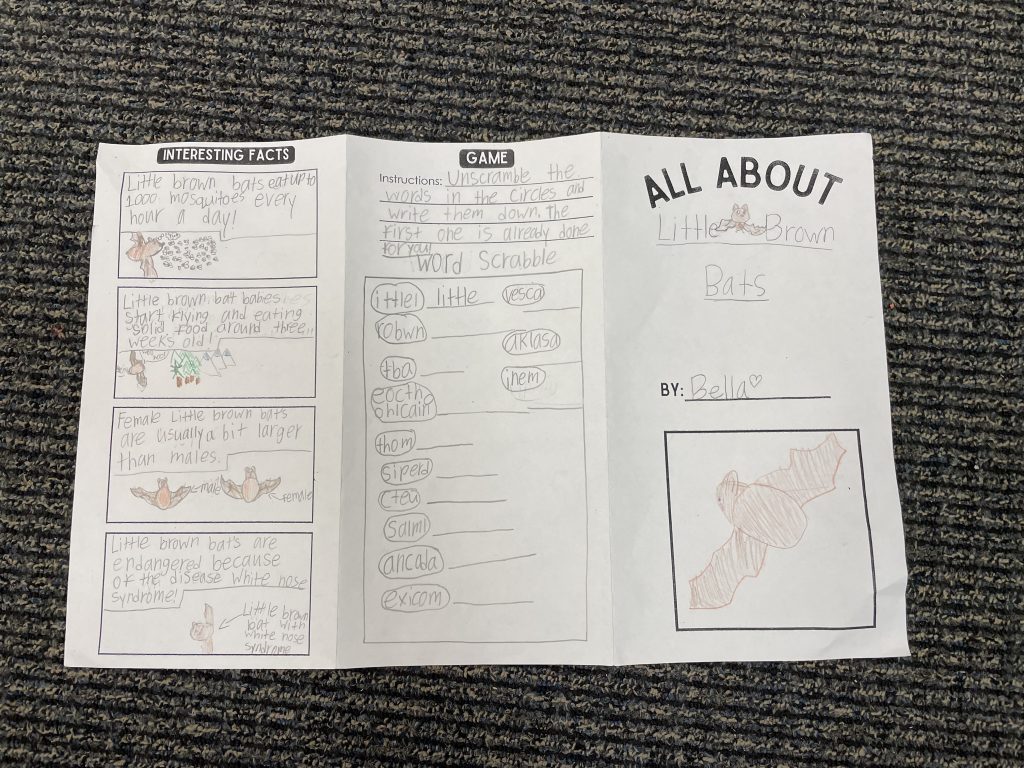 INTERESTING FACTS
Little brown bats eat up to
1000 mosquitoes every
hour a day!
Little brown bat babes
start flying and eating
solid food around three
weeks old!
Female Little brown bats
are usually a bit larger
than males.
male
female
Little brown bats are
endangered because
of the disease white nose
syndrome!
Little brown
bat with
white nose
syndrome
GAME
Instructions: Unscramble the
words in the circles and
write them down, the
first one is already done
for you!
Word Scrabble
ittlel little
robwn
tba
eocth
ohlcain
thom
siperd
cteu
Salml
ancada
exicom
vesca
aklasa
inem
ALL ABOUT
Little Brown
Bats
BY: Bella